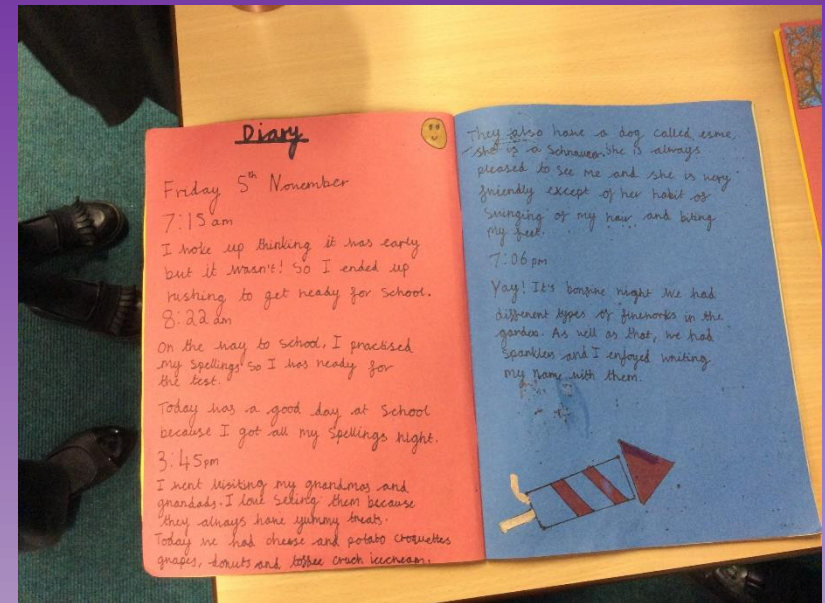 Diary
Friday 5th November
7:15 am
I woke up thinking it was early
but it wasn't! So I ended up
rushing to get ready for school.
8:22 am
On the way to school, I practised
my spellings so I was ready for
the test.
Today was a good day at school
because I got all my spellings right.
3:45pm
I went visiting my grandmas and
grandads. I love seeing them because
they always have yummy treats.
Today we had cheese and potato croquettes
grapes, donuts and toffee crach icecream.
They also have a dog called esme,
she is a Schnauzer. She is always
pleased to see me and she is very
friendly except of her habit of
swinging of my hair and biting
my feet.
7:06 pm
Yay! It's bonfire night we had
different types of fireworks in the
garden. As well as that, we had
Sparklers and I enjoyed writing
my name with them.